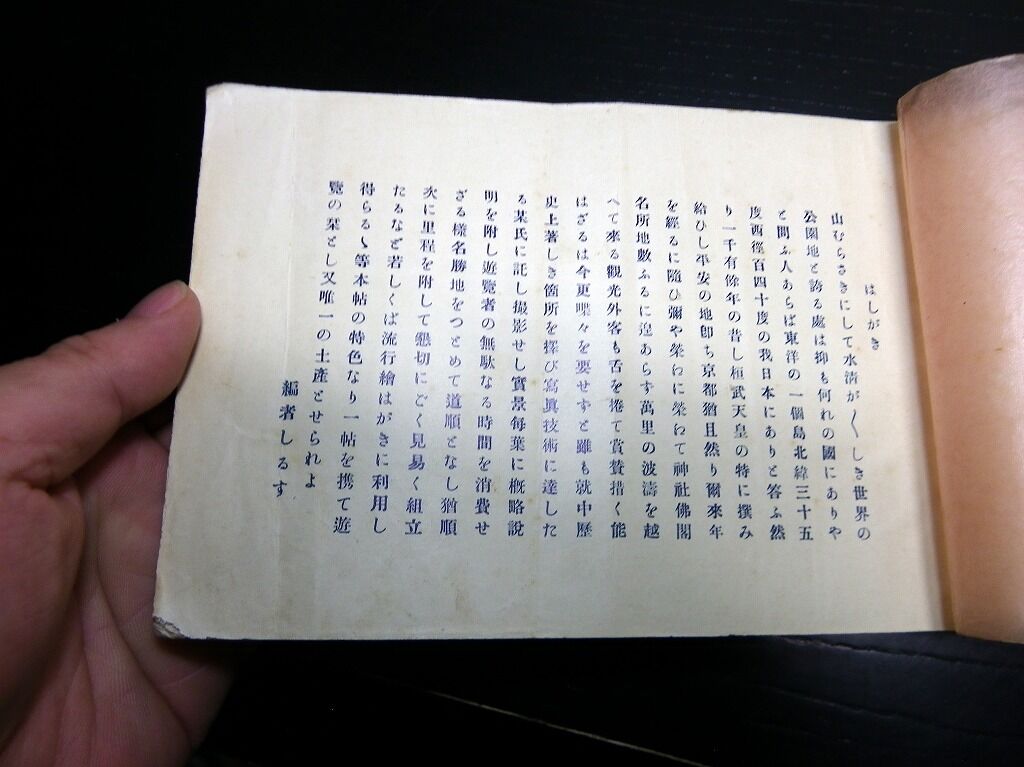 はしがき
山むらさきにして水清が〳〵しき世界の
公園地と誇る處は抑も何れの國にありや
と問ふ人あらば東洋の一個島北緯三十五
度西徑百四十度の我日本にありと答ふ然
り一千有餘年の昔し桓武天皇の特に撰み
給ひし平安の地卽ち京都猶且然り爾來年
を經るに隨ひ彌や榮わに榮わて神社佛閣
名所地數ふるに遑あらす萬里の波濤を越
へて來る觀光外客も舌を捲て賞賛措く能
はざるは今更喋々を要せすと雖も就中歷
史上著しき箇所を擇び寫眞技術に達した
る某氏に託し撮影せし實景每葉に槪略說
明を附し遊覽者の無駄なる時間を消費せ
ざる樣名勝地をつとめて道順となし猶順
次に里程を附して懇切にごく見易く組立
たるなど若しくば流行繪はがきに利用し
得らるゝ等本帖の特色なり一帖を携て遊
覽の栞とし又唯一の土產とせられよ
編者しるす